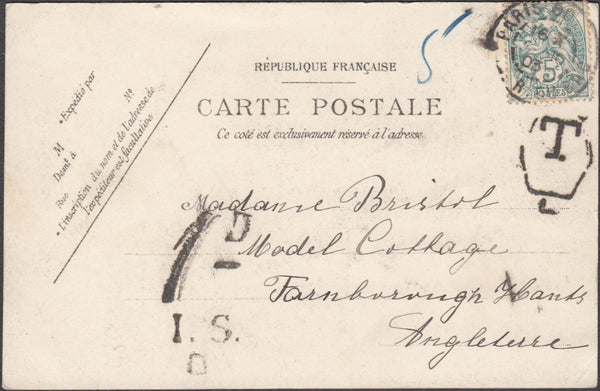 RÉPUBLIQUE FRANÇAISE
CARTE POSTALE
Ce coté est exclusivement réservé à l'adresse
•Expédié par
M N°
Domt à
Rue
•L'inscription du nom et de l'adresse de
l'expéditeur est facultative
5
PARIS
16
03
5
POSTES
T
Madame Bristol
Model Cottage
Farnborough Hants
Angleterre
D
I. S.
D